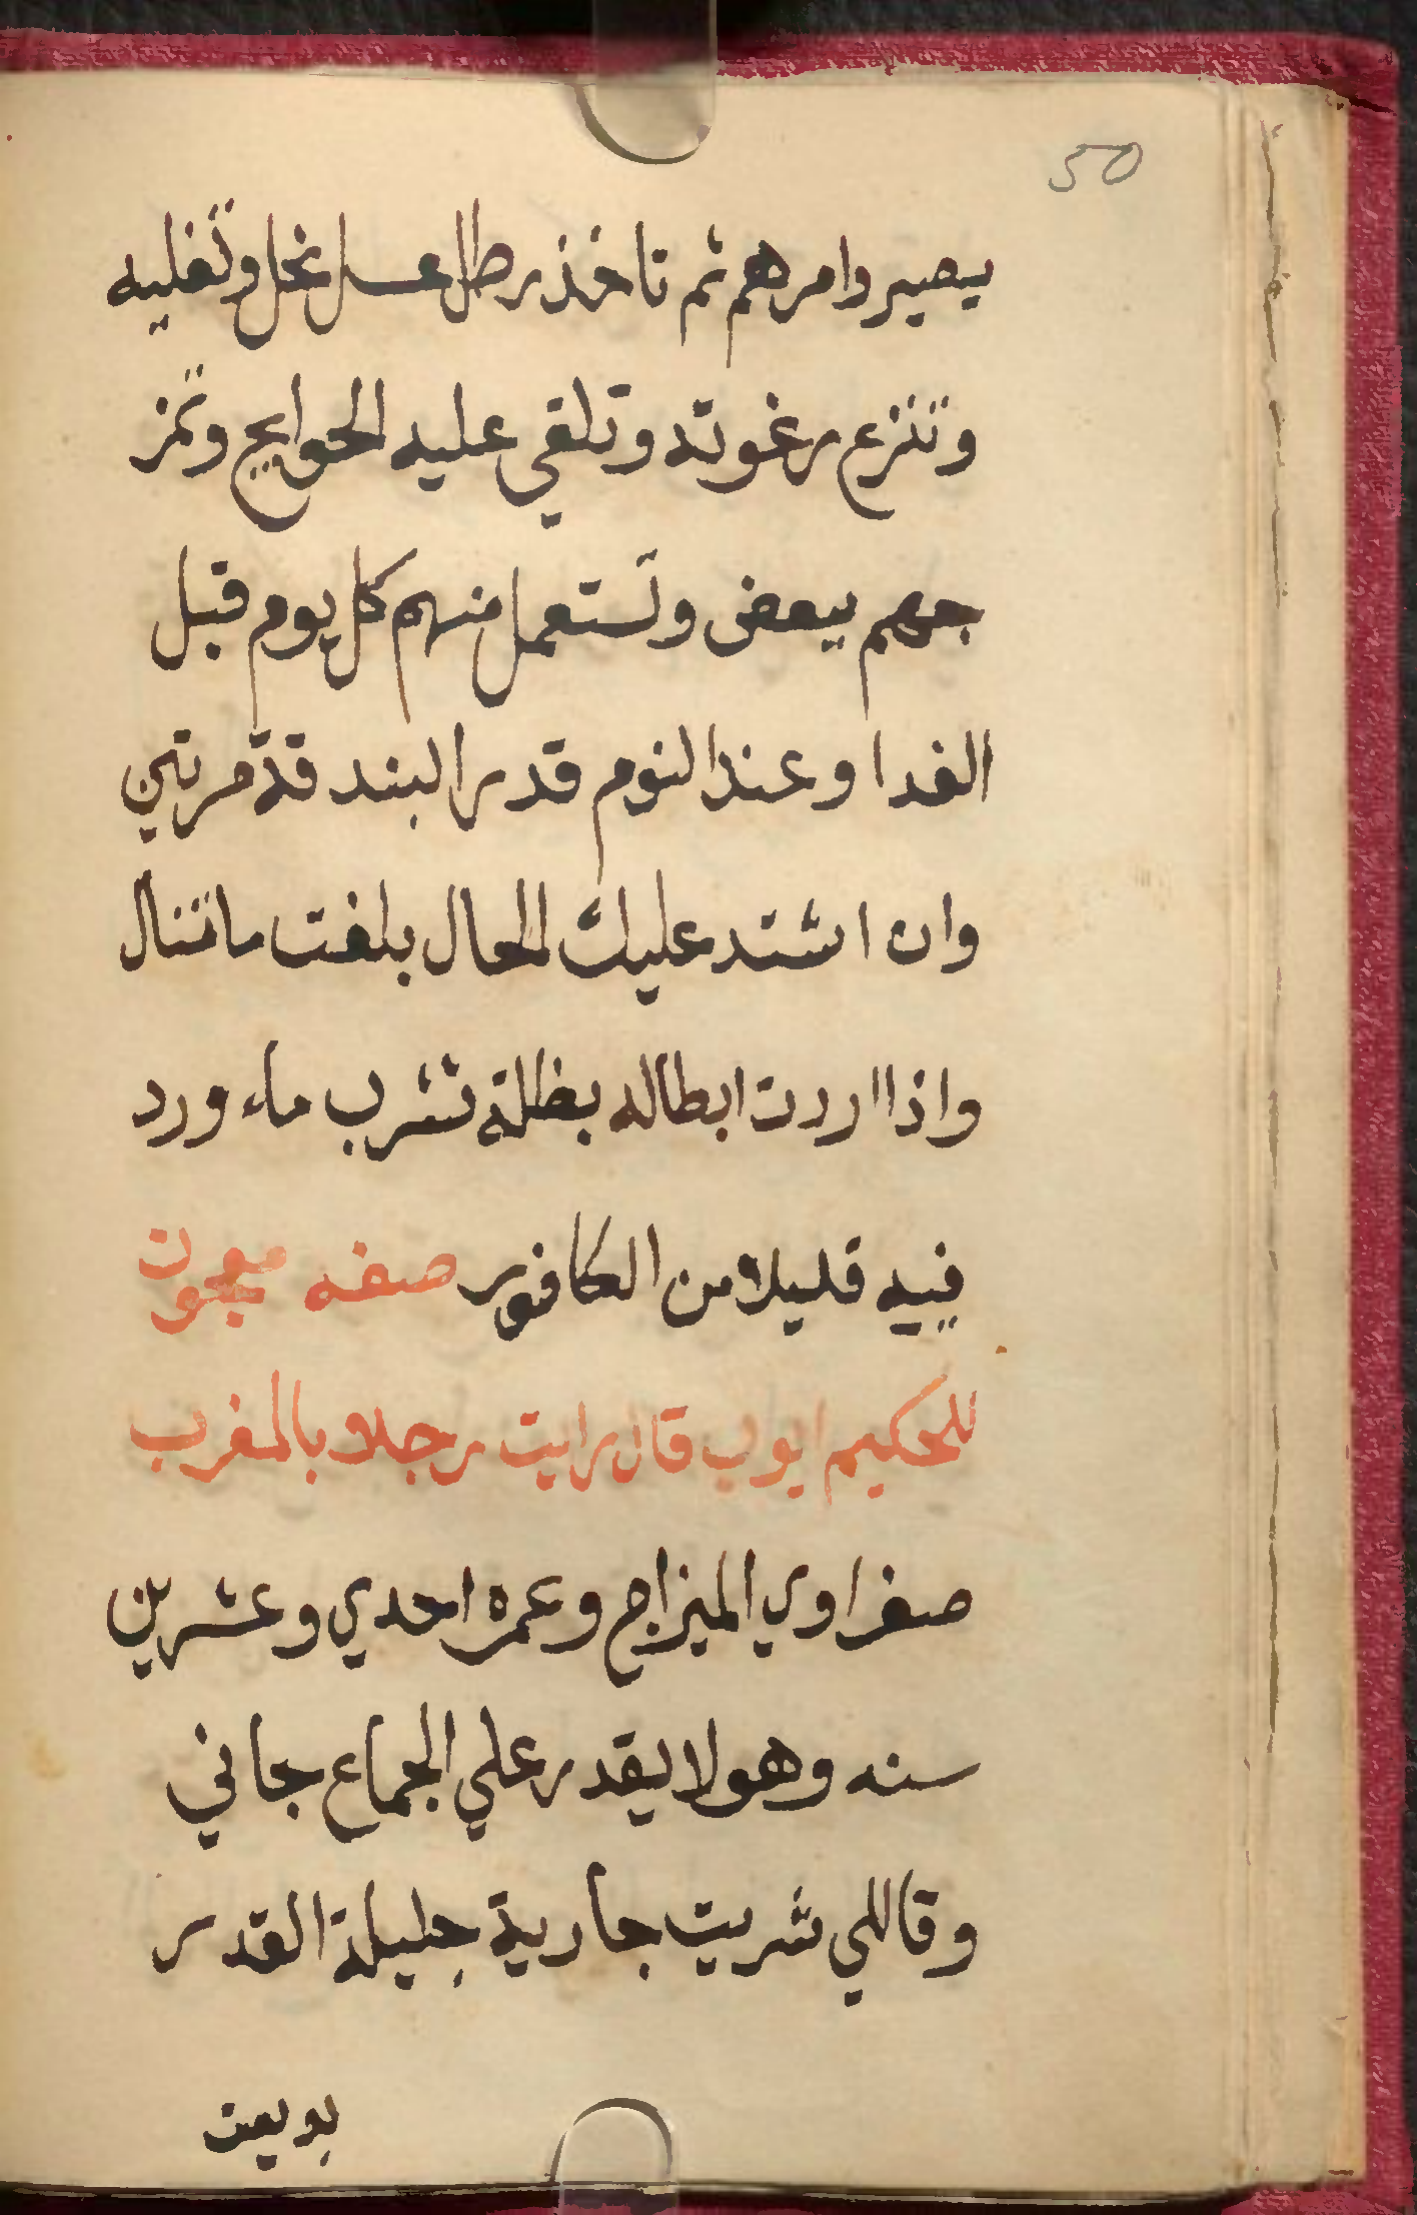 50
يصير وامرهم ثم تاخذ رطل عسل نحل وتغليه
وتنزع رغوته وتلقي عليه الحوايج وتمز
جهم ببعض وتستعمل منهم كل يوم قبل
الغدا وعند النوم قدر البندقة مرتين
وان اشتد عليك الحال بلغت ما تنال
واذا اردت ابطاله بظلة تشرب ماء ورد
فيه قليلا من الكافور صفه معجون
للحكيم ايوب قال رايت رجلا بالمغرب
صفراوي المزاج وعمره احدي وعشرين
سنه وهو لا يقدر علي الجماع جاني
وقاللي شريت جارية جليلة القدر
بديعت